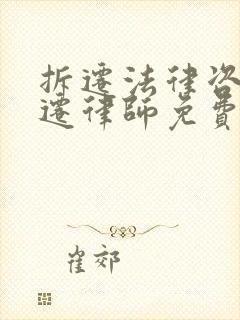 拆迁法律咨
遷律師免費
崔郊